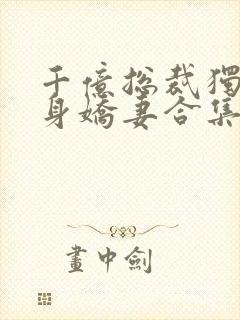 千億总裁獨
身嬌妻合集
畫中劍